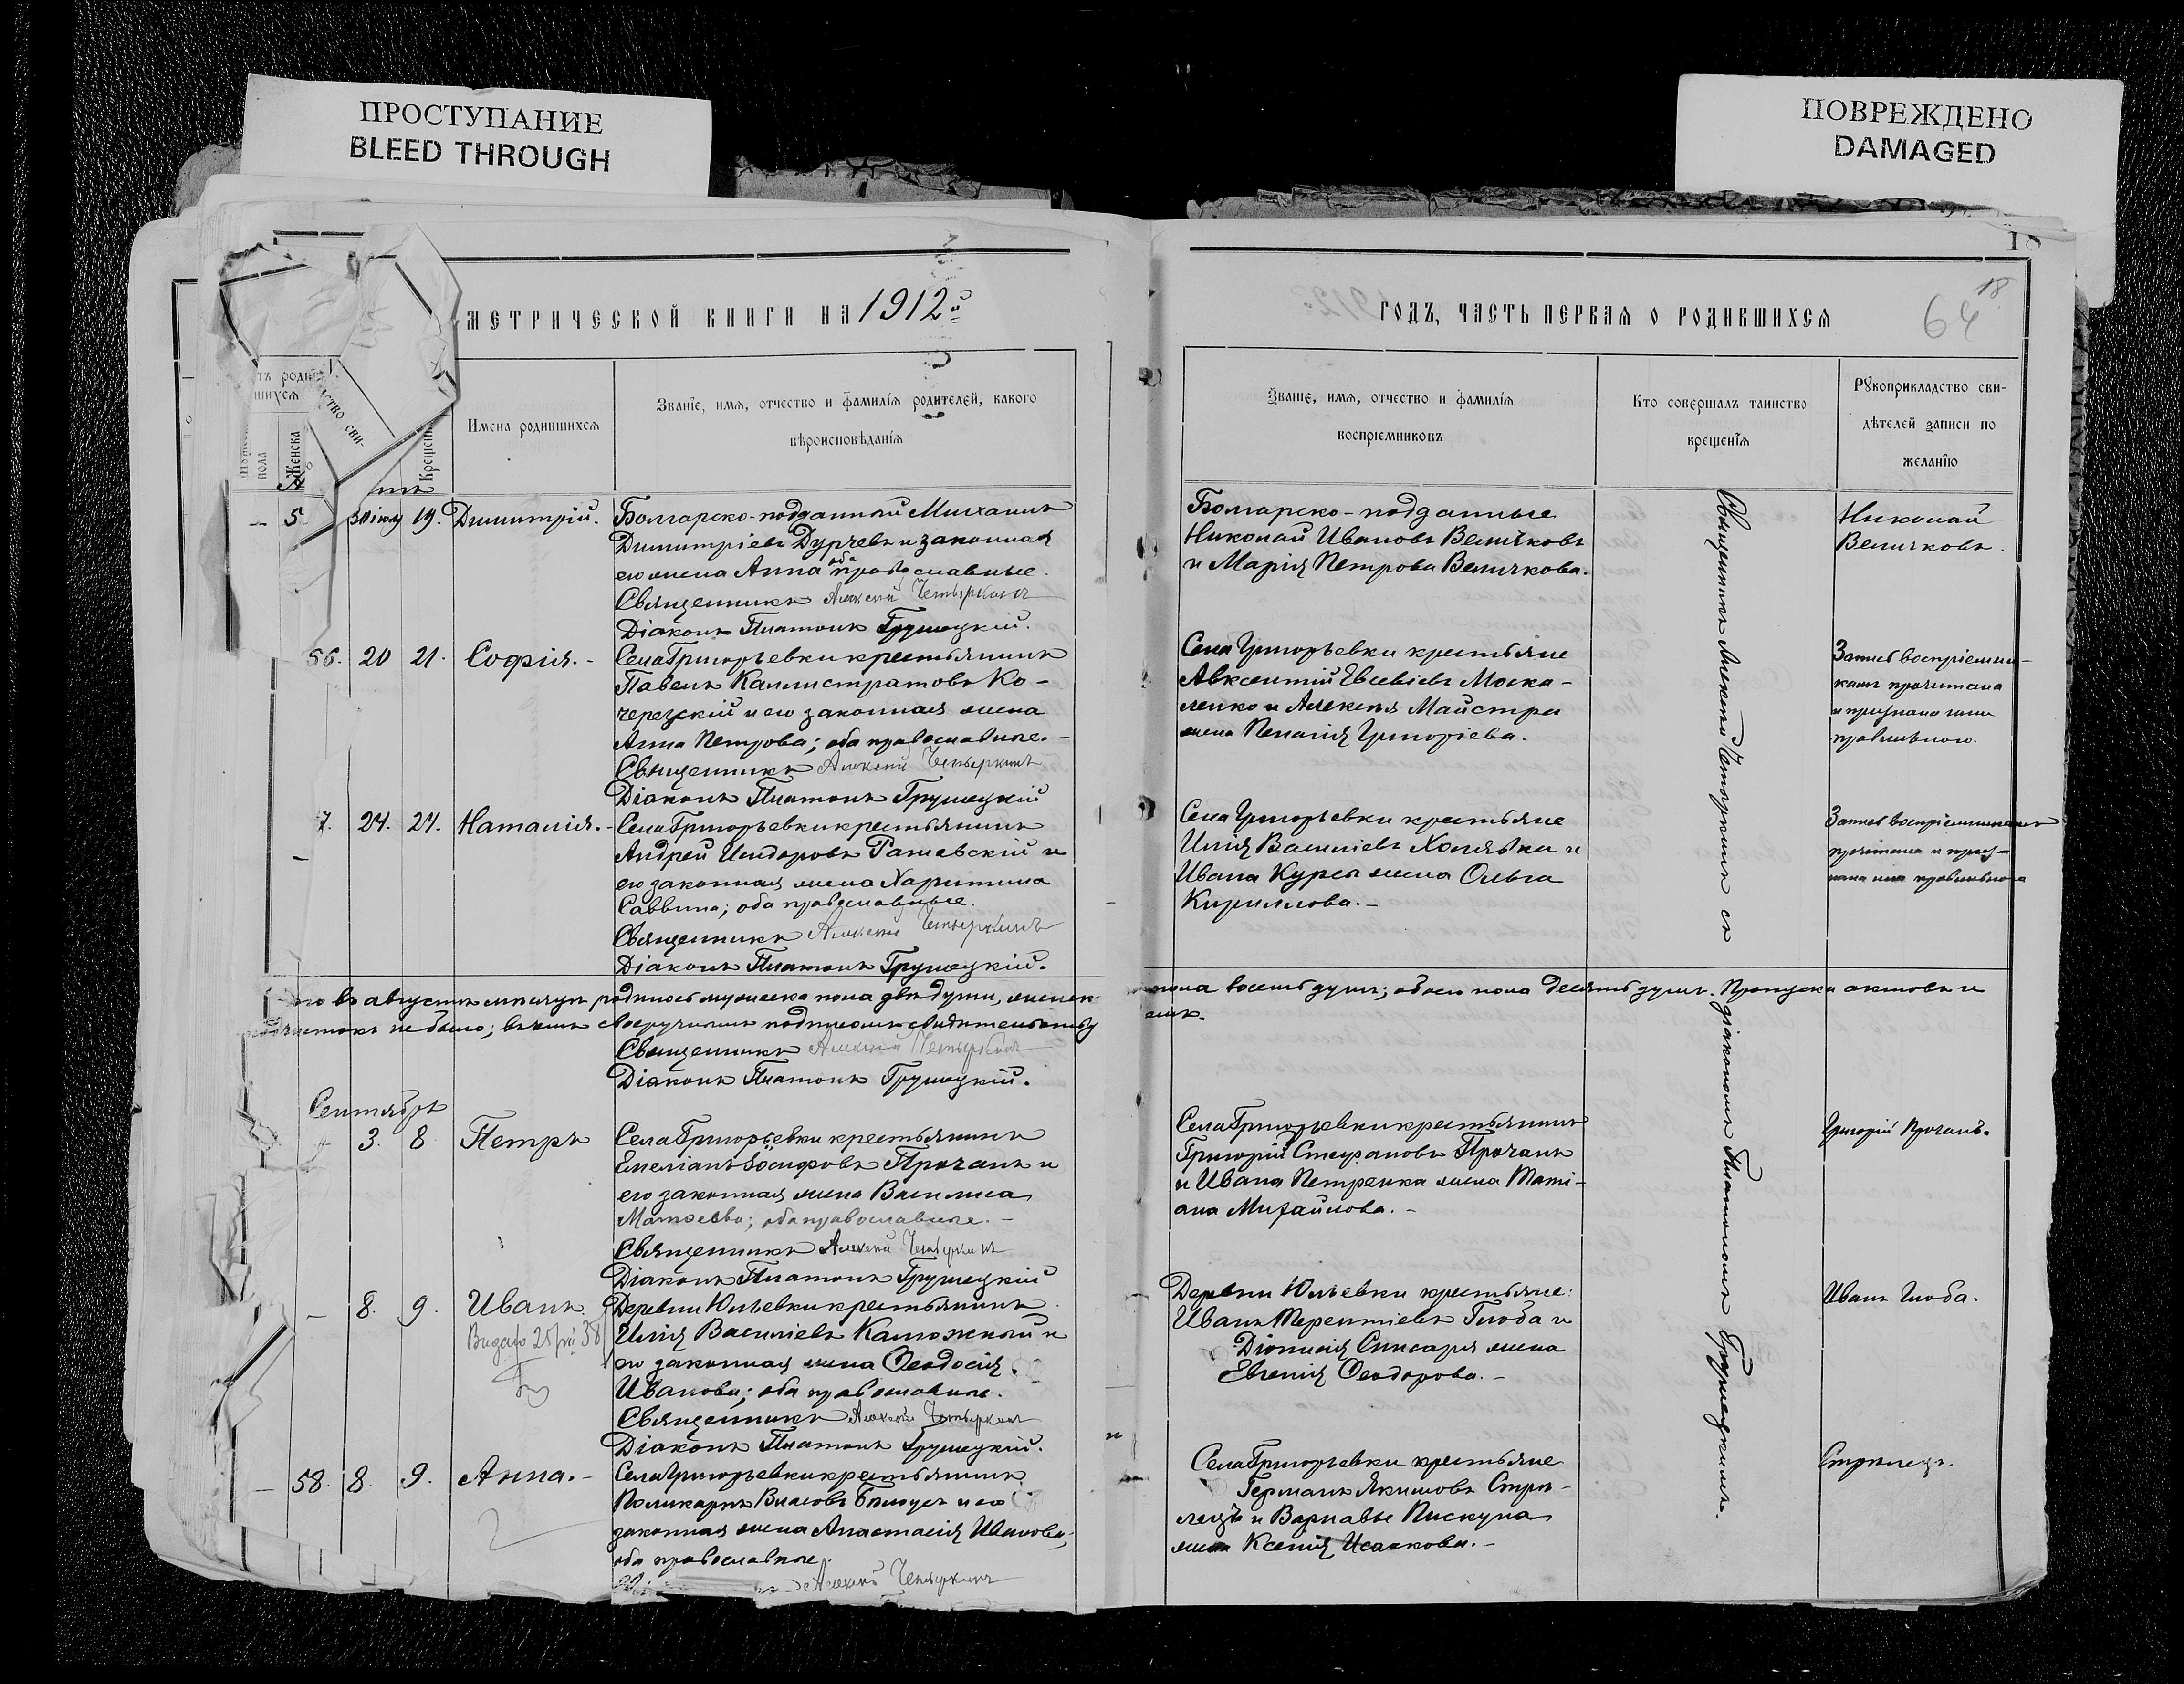 ПРОСТУПАНИЕ
BLEED THROUGH
ПОВРЕЖДЕНО
DAMAGED
МЕТРИЧЕСКОЙ КНИГИ НА 1912й
ГОДЪ, ЧАСТЬ ПЕРВАЯ О РОДИВШИХСЯ
18
18
64
родив
шихся
пола
Женска
Крещенія
Имена родившихся
Званіе, имя, отчество и фамилія родителей, какого
вѣроисповѣданія
Званіе, имя, отчество и фамилія
воспріемниковъ
Кто совершалъ таинство
крещенія
Рукоприкладство сви-
дѣтелей записи по
желанію
5
19. Димитрій.
Болгарско-подданный Михаилъ
Димитріевъ Дурчевъ и законная
его жена Анна оба православные.
Священникъ Алексій Четыркинъ
Діаконъ Платонъ Грушецкій.
Болгарско-подданные
Николай Ивановъ Величковъ
и Марія Петрова Величкова.
Николай
Величковъ.
56. 20 21. Софія.-
Села Григорьевки крестьянинъ
Павелъ Каллистратовъ Ко-
черезскій и его законная жена
Анна Петрова; оба православные.-
Священникъ Алексій Четыркинъ
Діаконъ Платонъ Грушецкій
Села Григорьевки крестьяне
Авксентій Евсевіевъ Моска-
ленко и Алексѣя Майстри
жена Пелагія Григоріева.
Запись воспріемни-
камъ прочитана
и признана ими
правильною.
7. 24. 24. Наталія.-
Села Григорьевки крестьянинъ
Андрей Исидоровъ Рашевскій и
его законная жена Харитина
Саввина; оба православные.
Священникъ Алексій Четыркинъ
Діаконъ Платонъ Грушецкій.
Села Григорьевки крестьяне
Илія Василіевъ Холявка и
Ивана Куры жена Ольга
Кириллова.-
Запись воспріемникамъ
прочитана и приз-
нана ими правильною
въ августѣ мѣсяцѣ родилось мужеска пола двѣ души, женск.
пола восемь душъ; обоего пола десять душъ. Пропуска актовъ и
не было; въ чемъ своеручнымъ подписомъ свидѣтельству
емъ.
Священникъ Алексій Четыркинъ
Діаконъ Платонъ Грушецкій.
Сентябрь
3. 8 Петръ
Села Григорьевки крестьянинъ
Емеліанъ Іосифовъ Прочанъ и
его законная жена Василиса
Матѳеева; оба православные.-
Священникъ Алексій Четыркинъ
Діаконъ Платонъ Грушецкій
Села Григорьевки крестьянинъ
Григорій Стефановъ Прочанъ
и Ивана Петренка жена Таті-
ана Михайлова.-
Григорій Прочанъ.
- 8. 9. Иванъ.
Деревни Юльевки крестьянинъ
Илія Василіевъ Калюжный и
его законная жена Ѳеодосія
Иванова; оба православные.
Священникъ Алексій Четыркинъ
Діаконъ Платонъ Грушецкій.
Деревни Юльевки крестьяне:
Иванъ Терентіевъ Глоба и
Діонисія Слисаря жена
Евгенія Ѳеодорова.-
Иванъ Глоба.
- 58. 8. 9. Анна.-
Села Григорьевки крестьянинъ
Поликарпъ Власовъ Билоусъ и его
законная жена Анастасія Иванова;
оба православные.
Алексій Четыркинъ
Села Григорьевки крестьяне
Германъ Якимовъ Стрѣ-
лецъ и Варнавы Пискуна
жена Ксенія Исаакова.-
Стрѣлецъ.
Священникъ Алексій Четыркинъ съ діакономъ Платономъ Грушецкимъ.